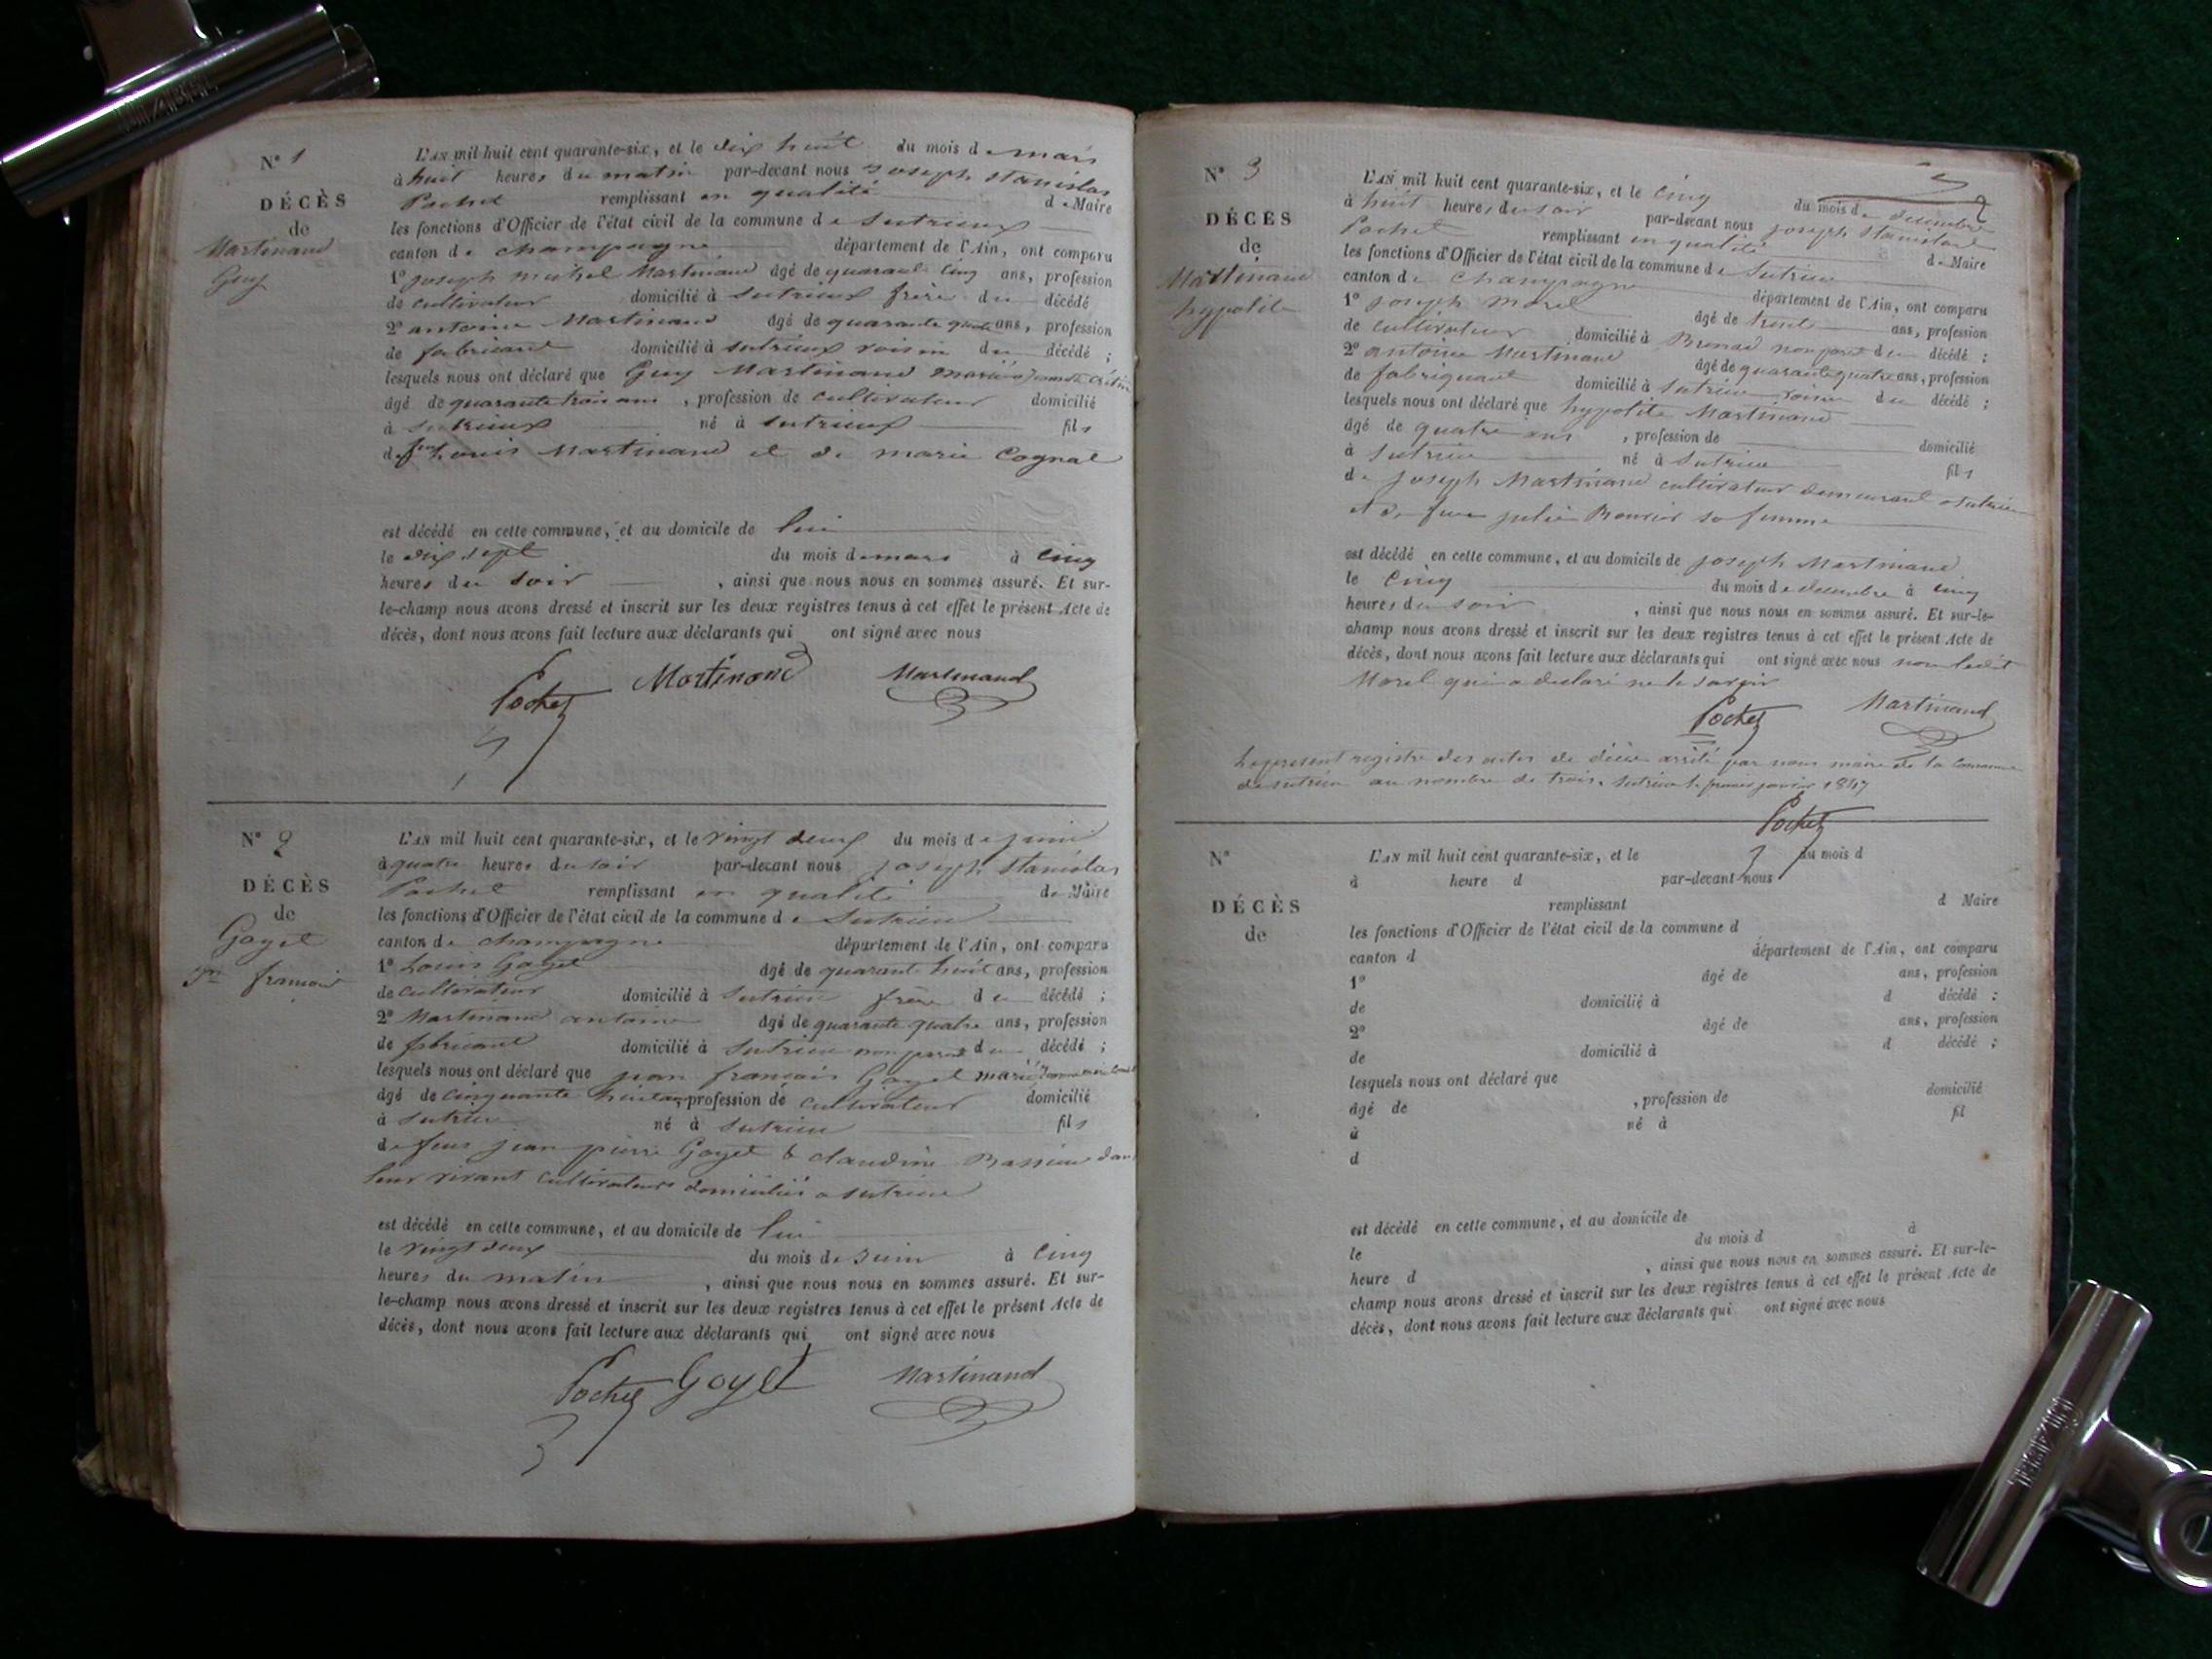 N° 1
DÉCÈS
de
Martinand
Guy
L'AN mil huit cent quarante-six, et le dix huit du mois de mars
à huit heures du matin par-devant nous Joseph Stanislas
Pochet remplissant en qualité de Maire
les fonctions d'Officier de l'état civil de la commune de Sutrieux
canton de champagne département de l'Ain, ont comparu
1° Joseph michel Martinand âgé de quarante cinq ans, profession
de cultivateur domicilié à Sutrieux frère du décédé
2° antoine Martinand âgé de quarante quatre ans, profession
de fabricant domicilié à sutrieux voisin du décédé ;
lesquels nous ont déclaré que Guy Martinand marié à
âgé de quarante trois ans , profession de cultivateur domicilié
à Sutrieux né à Sutrieux fils
de feu Louis Martinand et de marie Cognat
est décédé en cette commune, et au domicile de lui
le dix sept du mois de mars à cinq
heures du soir , ainsi que nous nous en sommes assuré. Et sur-
le-champ nous avons dressé et inscrit sur les deux registres tenus à cet effet le présent Acte de
décès, dont nous avons fait lecture aux déclarants qui ont signé avec nous
Pochet Martinand Martinand
N° 2
DÉCÈS
de
Goyet
Jn francois
L'AN mil huit cent quarante-six, et le vingt deux du mois de juin
à quatre heures du soir par-devant nous joseph Stanislas
Pochet remplissant en qualité de Maire
les fonctions d'Officier de l'état civil de la commune de Sutrieu
canton de champagne département de l'Ain, ont comparu
1° Louis Goyet âgé de quarante huit ans, profession
de cultivateur domicilié à Sutrieu frère du décédé ;
2° Martinand antoine âgé de quarante quatre ans, profession
de fabricant domicilié à Sutrieu non parent du décédé ;
lesquels nous ont déclaré que jean francois Goyet marié
âgé de cinquante huit ans, profession de cultivateur domicilié
à Sutrieu né à Sutrieu fils
de feus jean pierre Goyet & claudine dans
leur vivant cultivateurs domiciliés a Sutrieu
est décédé en cette commune, et au domicile de lui
le vingt deux du mois de Juin à cinq
heures du matin , ainsi que nous nous en sommes assuré. Et sur-
le-champ nous avons dressé et inscrit sur les deux registres tenus à cet effet le présent Acte de
décès, dont nous avons fait lecture aux déclarants qui ont signé avec nous
Pochet Goyet Martinand
N° 3
DÉCÈS
de
Martinand
hypolite
L'AN mil huit cent quarante-six, et le cinq du mois de decembre
à huit heures du soir par-devant nous joseph Stanislas
Pochet remplissant en qualité de Maire
les fonctions d'Officier de l'état civil de la commune de Sutrieu
canton de Champagne département de l'Ain, ont comparu
1° joseph Morel âgé de trente ans, profession
de cultivateur domicilié à non parent du décédé ;
2° antoine Martinand âgé de quarante quatre ans, profession
de fabriquant domicilié à Sutrieu voisin du décédé ;
lesquels nous ont déclaré que hypolite Martinand
âgé de quatre ans , profession de domicilié
à Sutrieu né à Sutrieu fils
de Joseph Martinand cultivateur demeurant a Sutrieu
et de feue julie sa femme
est décédé en cette commune, et au domicile de joseph Martinand
le cinq du mois de decembre à cinq
heures du soir , ainsi que nous nous en sommes assuré. Et sur-le-
champ nous avons dressé et inscrit sur les deux registres tenus à cet effet le présent Acte de
décès, dont nous avons fait lecture aux déclarants qui ont signé avec nous non ledit
Morel qui a declaré ne le savoir
Pochet Martinand
Le present registre des actes de décès arrêté par nous maire de la Commune
de sutrieu au nombre de trois. Sutrieu le premier janvier 1847
Pochet
N°
DÉCÈS
de
L'AN mil huit cent quarante-six, et le du mois d
à heure d par-devant nous
remplissant d Maire
les fonctions d'Officier de l'état civil de la commune d
canton d département de l'Ain, ont comparu
1° âgé de ans, profession
de domicilié à d décédé ;
2° âgé de ans, profession
de domicilié à d décédé ;
lesquels nous ont déclaré que
âgé de , profession de domicilié
à né à fil
d
est décédé en cette commune, et au domicile de
le du mois d à
heure d , ainsi que nous nous en sommes assuré. Et sur-le-
champ nous avons dressé et inscrit sur les deux registres tenus à cet effet le présent Acte de
décès, dont nous avons fait lecture aux déclarants qui ont signé avec nous